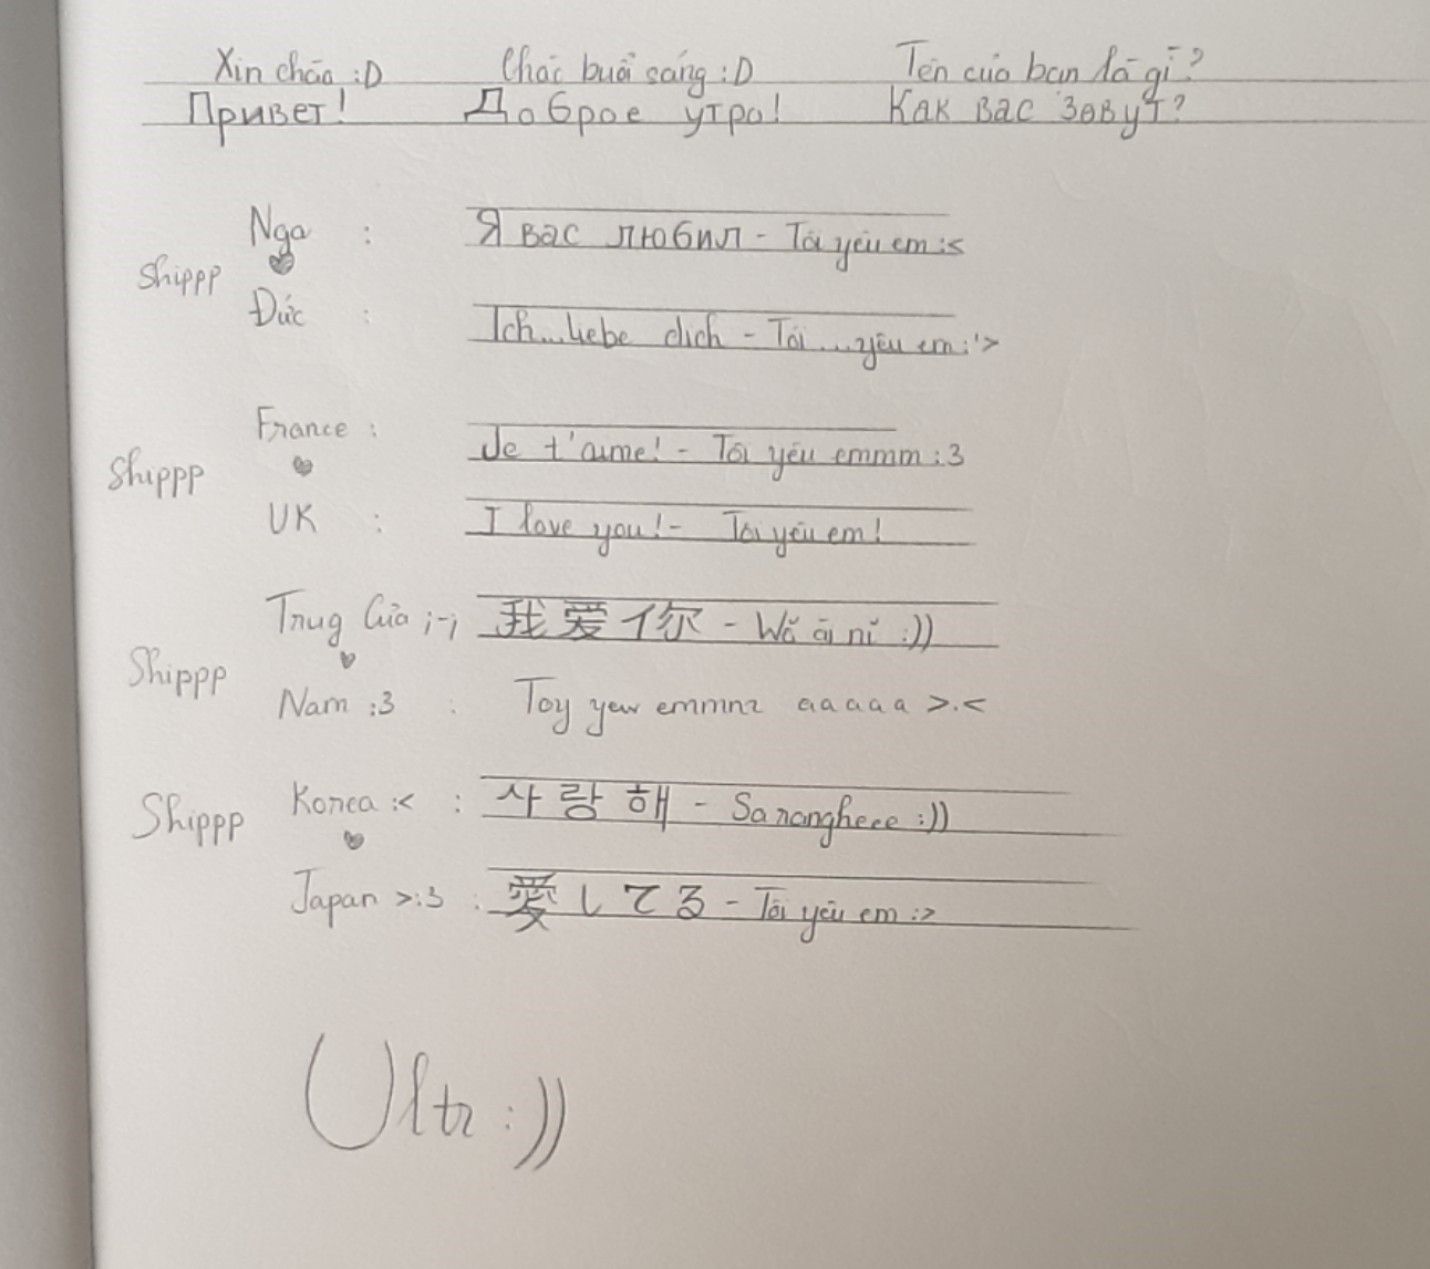 Xin chào :D Chào buổi sáng :D Tên của bạn là gì?
Привет! Доброе утро! Как вас зовут?
Nga : Я вас любил - Tôi yêu em :<
Shippp
Đức : Ich...liebe dich - Tôi...yêu em :'>
France : Je t'aime! - Tôi yêu emmmm :3
Shippp
UK : I love you! - Tôi yêu em!
Trug Của ;-; 我爱你 - Wǒ ài nǐ :))
Shippp
Nam :3 : Toy yew emmnr aaaaa >.<
Korea :< : 사랑해 - Sarangheee :))
Shippp
Japan >:3 : 愛してる - Tôi yêu em :>
Ultr :))